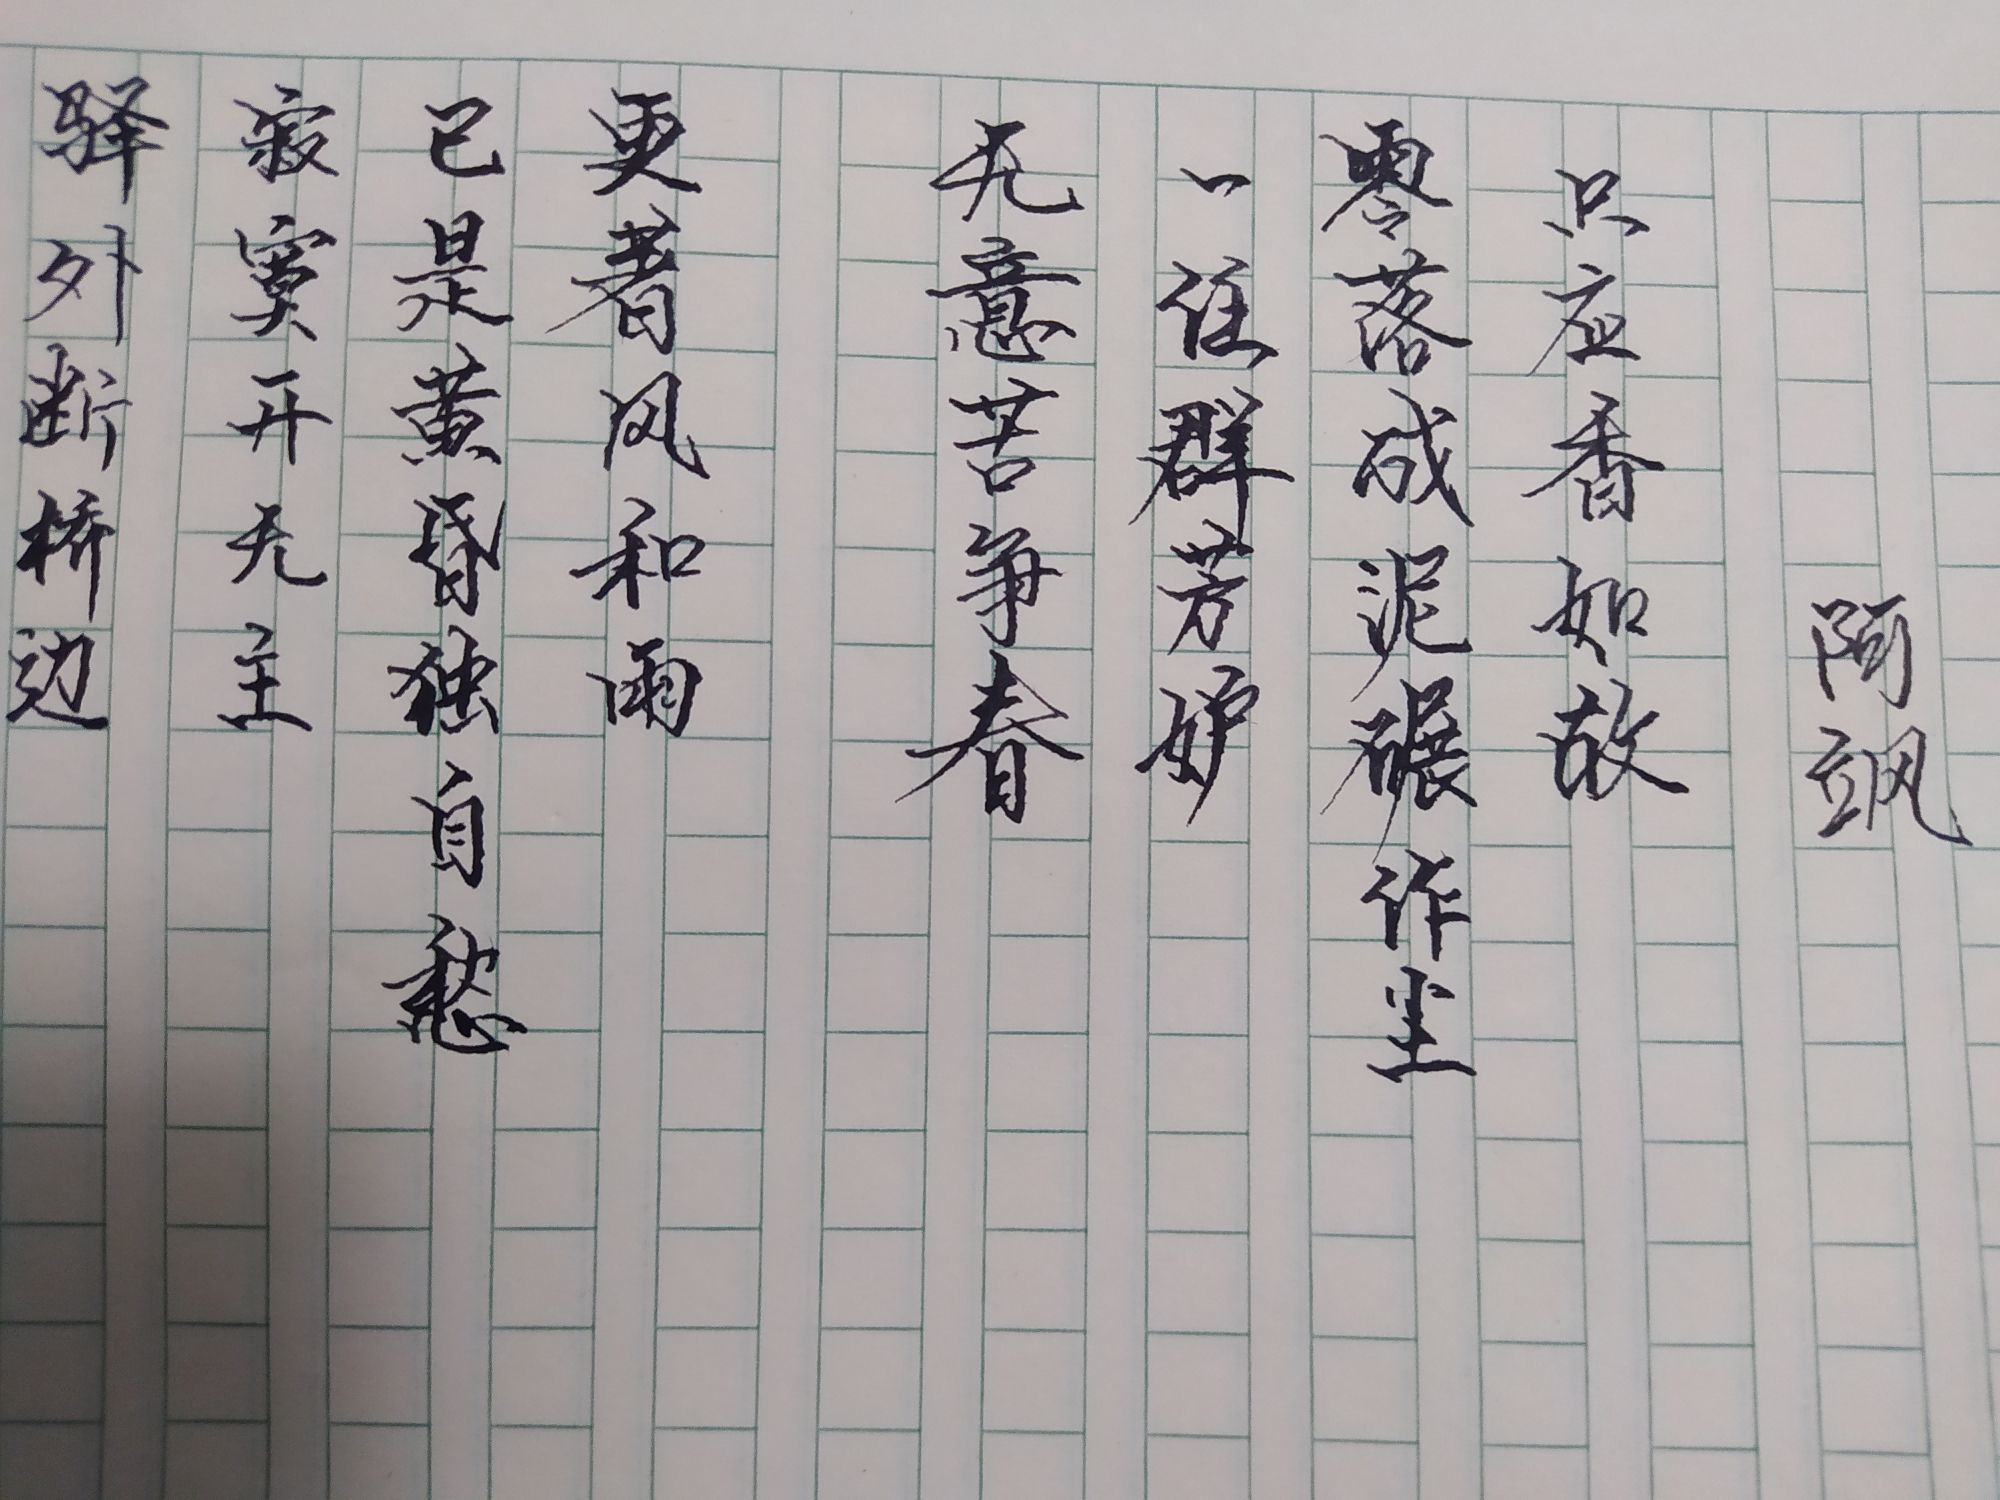 驿外断桥边
寂寞开无主
已是黄昏独自愁
更著风和雨
无意苦争春
一任群芳妒
零落成泥碾作尘
只应香如故
阿飒